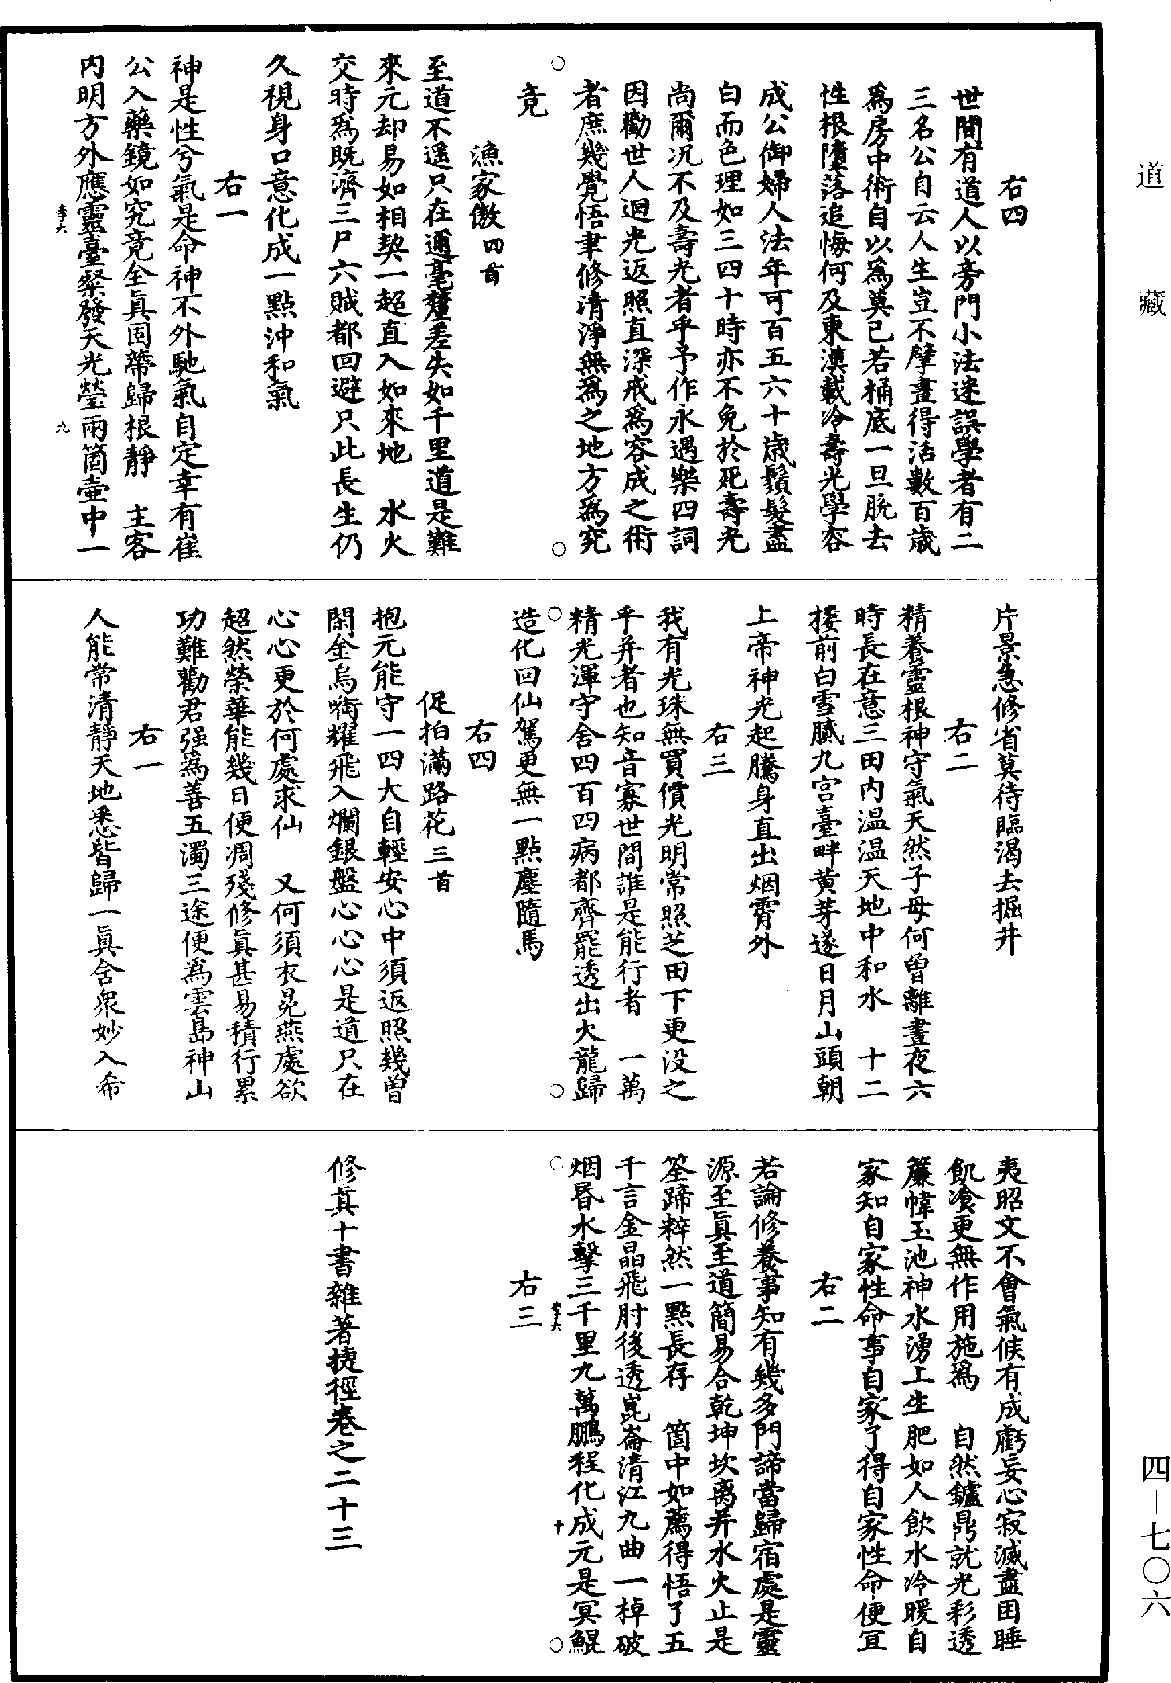 道藏
右四
世間有道人以旁門小法迷誤學者有二
三名公自云人生豈不擘畫得活數百歲
為房中術自以為莫已若桶底一旦脫去
性根墮落追悔何及東漢載冷壽光學容
成公御婦人法年可百五六十歲鬚髮盡
白而色理如三四十時亦不免於死壽光
尚爾况不及壽光者乎予作永遇樂四詞
因勸世人迴光返照直深戒為容成之術
者庶幾覺悟聿修清淨無為之地方為究
竟
漁家傲四首
至道不遥只在邇毫釐差失如千里道是難
來元却易如相契一超直入如來地　水火
交時為既濟三尸六賊都回避只此長生仍
久視身口意化成一點沖和氣
右一
神是性兮氣是命神不外馳氣自定幸有崔
公入藥鏡如究竟全真固蔕歸根靜　主客
內明方外應靈臺粲發天光瑩兩箇壺中一
九
片景急修省莫待臨渴去掘井
右二
精養靈根神守氣天然子母何曾離晝夜六
時長在意三田內温温天地中和水　十二
接前白雪膩九宫臺畔黄芽遂日月山頭朝
上帝神光起騰身直出烟霄外
右三
我有光珠無買價光明常照芝田下更没之
乎并者也知音寡世間誰是能行者　一萬
精光渾守舍四百四病都齊罷透出火龍歸
造化回仙駕更無一點塵隨馬
右四
促拍滿路花三首
抱元能守一四大自輕安心中須返照幾曾
閑金烏啣耀飛入爛銀盤心心心是道只在
心心更於何處求仙　又何須衣冕燕處欲
超然榮華能幾日便凋殘修真甚易積行累
功難勸君强為善五濁三途便為雲島神山
右一
人能常清靜天地悉皆歸一真含衆妙入希
夷昭文不會氣候有成虧妄心寂滅盡困睡
飢飡更無作用施為　自然鑪鼎就光彩透
簾幃玉池神水湧上生肥如人飲水冷暖自
家知自家性命事自家了得自家性命便宜
右二
若論修養事知有幾多門諦當歸宿處是靈
源至真至道簡易合乾坤坎离并水火止是
筌蹄粹然一點長存　箇中如薦得悟了五
千言金晶飛肘後透崑崙清江九曲一棹破
烟昬水擊三千里九萬鵬程化成元是冥鯤
十
右三
修真十書雜著捷徑卷之二十三
四—七〇六